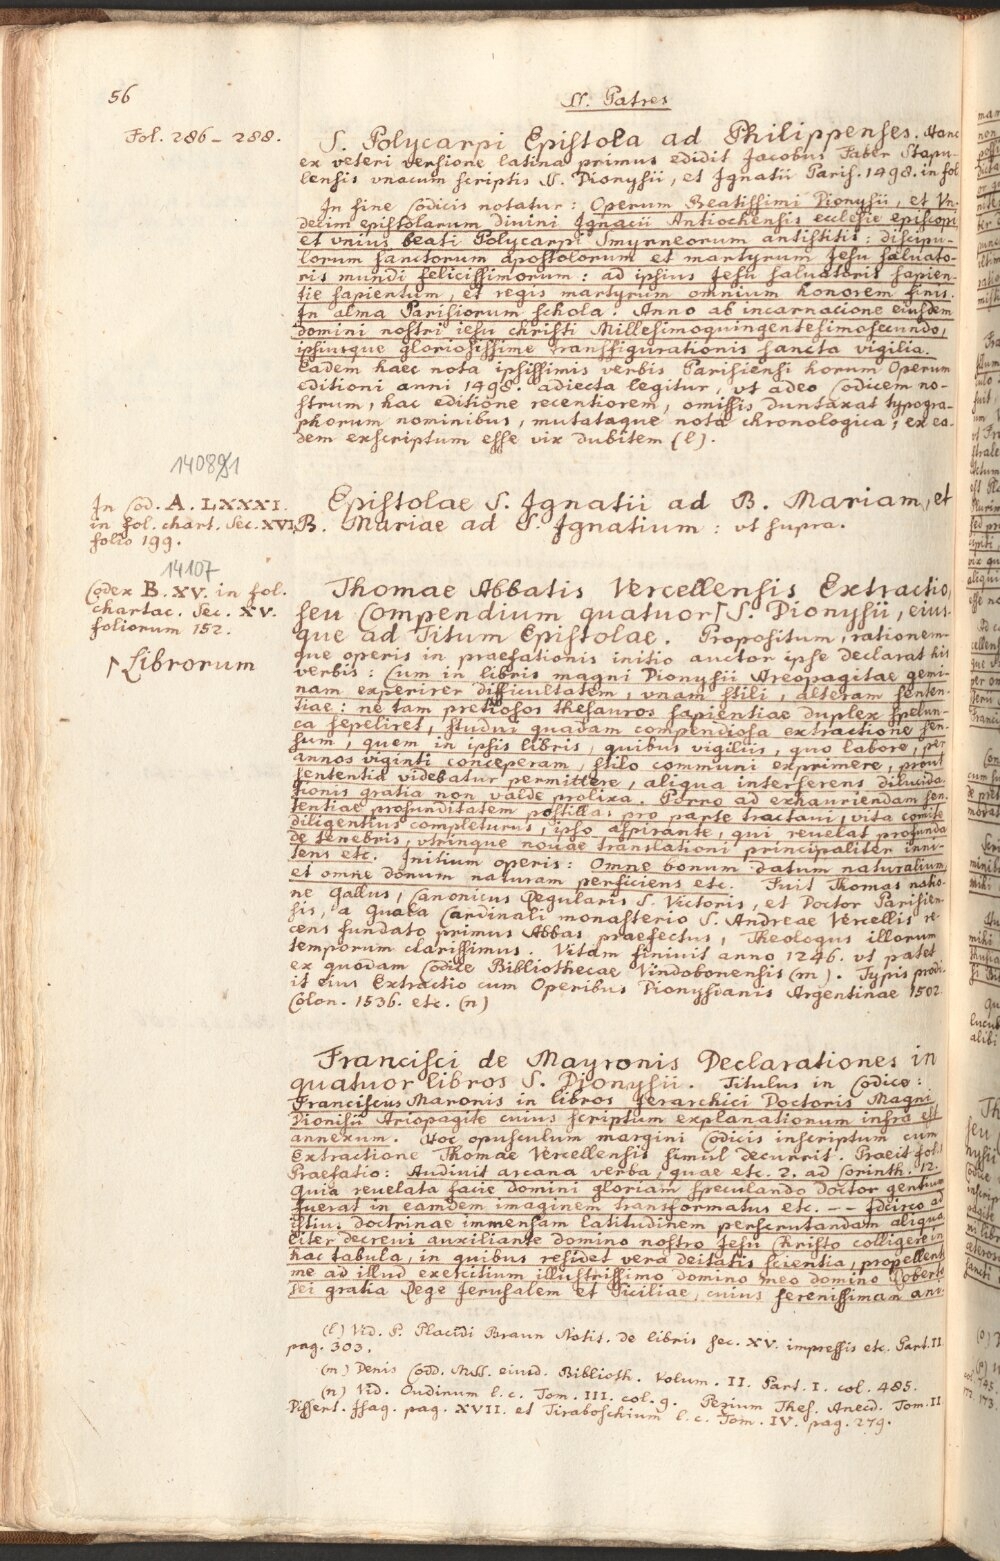 56
SS. Patres
Fol. 286 – 288.
S. Polycarpi Epistola ad Philippenses. Hanc
ex veteri versione latina primus edidit Jacobus Faber Stapu-
lensis vnacum scriptis S. Dionysii, et Ignatii Paris. 1498. in fol
In fine Codicis notatur: Operum Beatissimi Dionysii, et Vn-
decim epistolarum divini Ignacii Antiochensis ecclesie episcopi,
et vnius beati Polycarpi Smyrneorum antistitis: discipu-
lorum sanctorum apostolorum et martyrum Jesu saluato-
ris mundi felicissimorum: ad ipsius Jesu saluatoris sapien-
tie sapientum, et regis martyrum omnium honorem finis.
In alma Parisiorum schola. Anno ab incarnacione eiusdem
domini nostri iesu christi Millesimoquingentesimosecundo,
ipsiusque gloriosissime transfigurationis sancta vigilia.
Eadem haec nota ipsissimis verbis Parisiensi horum Operum
editioni anni 1498. adiecta legitur, vt adeo Codicem no-
strum, hac editione recentiorem, omissis duntaxat typogra-
phorum nominibus, mutataque nota chronologica, ex ea-
dem exscriptum esse vix dubitem (l).
14081
In Cod. A. LXXXI.
in fol. chart. Sec. XVI.
folio 199.
Epistolae S. Ignatii ad B. Mariam, et
B. Mariae ad S. Ignatium: vt supra.
14107
Codex B. XV. in fol.
chartac. Sec. XV.
foliorum 152.
Γ Librorum
Thomae Abbatis Vercellensis Extractio,
seu Compendium quatuor Γ S. Dionysii, eius-
que ad Titum Epistolae. Propositum, rationem-
que operis in praefationis initio auctor ipse declarat his
verbis: Cum in libris magni Dionysii Areopagitae gemi-
nam experirer difficultatem, vnam stili, alteram senten-
tiae: ne tam pretiosos thesauros sapientiae duplex spelun-
ca sepeliret, studui quadam compendiosa extractione sen-
sum, quem in ipsis libris, quibus vigiliis, quo labore, per
annos viginti conceperam, stilo communi exprimere, prout
sententia videbatur permittere, aliqua interserens dilucida-
tionis gratia non valde prolixa. Porro ad exhauriendam sen-
tentiae profunditatem postillas pro parte tractaui, vita comite
diligentius completurus, ipso aspirante, qui reuelat profunda
de tenebris, vtrinque nouae translationi principaliter inni-
tens etc. Initium operis: Omne bonum datum naturalium,
et omne donum naturam perficiens etc. Fuit Thomas natio-
ne Gallus, Canonicus Regularis S. Victoris, et Doctor Parisien-
sis, a Guala Cardinali monasterio S. Andreae Vercellis re-
cens fundato primus Abbas praefectus, Theologus illorum
temporum clarissimus. Vitam finiuit anno 1246. vt patet
ex quodam Codice Bibliothecae Vindobonensis (m). Typis prodi-
it eius Extractio cum Operibus Dionysianis Argentinae 1502
Colon. 1536. etc. (n)
Francisci de Mayronis Declarationes in
quatuor libros S. Dionysii. Titulus in Codice:
Franciscus Maronis in libros Jerarchici Doctoris Magni
Dionisii Ariopagite cuius scriptum explanationum infra est
annexum. Hoc opusculum margini Codicis inscriptum cum
Extractione Thomae Vercellensis simul decurrit. Praeit fol. 1
Praefatio: Audiuit arcana verba, quae etc. 2. ad Corinth. 12.
Quia reuelata facie domini gloriam speculando Doctor gentium
fuerat in eamdem imaginem transformatus etc. -- Idcirco ad
istius doctrinae immensam latitudinem perscrutandam aliqua-
liter decreui auxiliante domino nostro Jesu Christo colligere in
hac tabula, in quibus residet vera deitatis scientia, propellent
me ad illud exercitium illustrissimo domino meo domino Roberto
Dei gratia Rege Jerusalem et Siciliae, cuius serenissimam ani-
(l) Vid. P. Placidi Braun Notit. de libris sec. XV. impressis etc. Part. II
pag. 303.
(m) Denis Codd. Mss. eiusd. Biblioth. Volum. II. Part. I. col. 485.
(n) Vid. Oudinum l. c. Tom. III. col. 9. Pezium Thes. Anecd. Tom. II
Dissert. Isag. pag. XVII. et Tiraboschium l. c. Tom. IV. pag. 279.